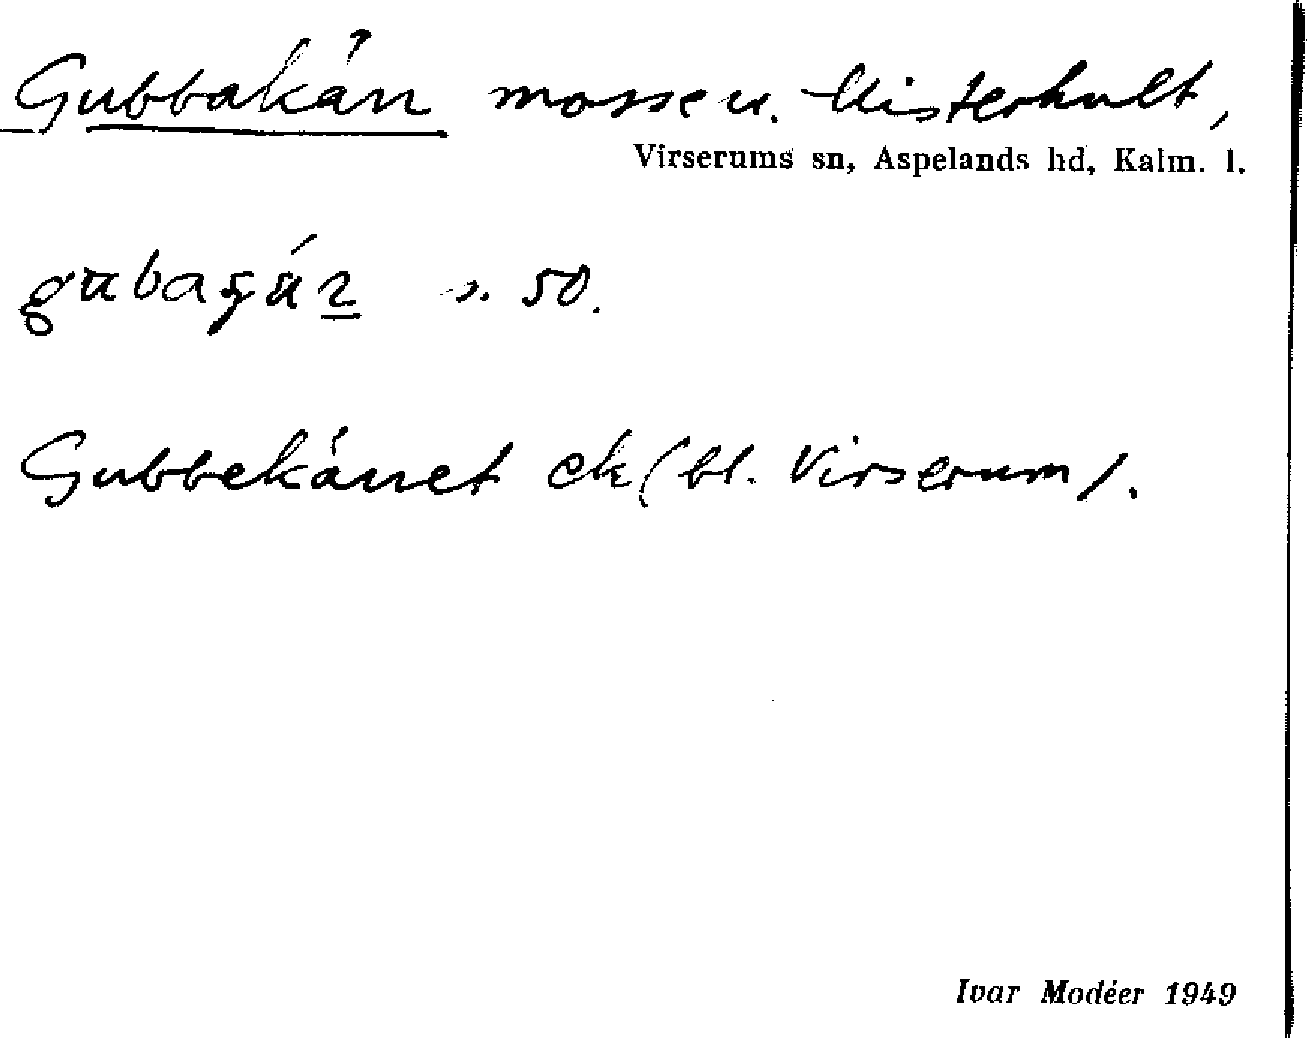 Gubbakärr mosse u. Misterhult,
Virserums sn, Aspelands hd, Kalm. l.
s. 50.
Gubbekärret ek (bl. Virserum).
Ivar Modéer 1949